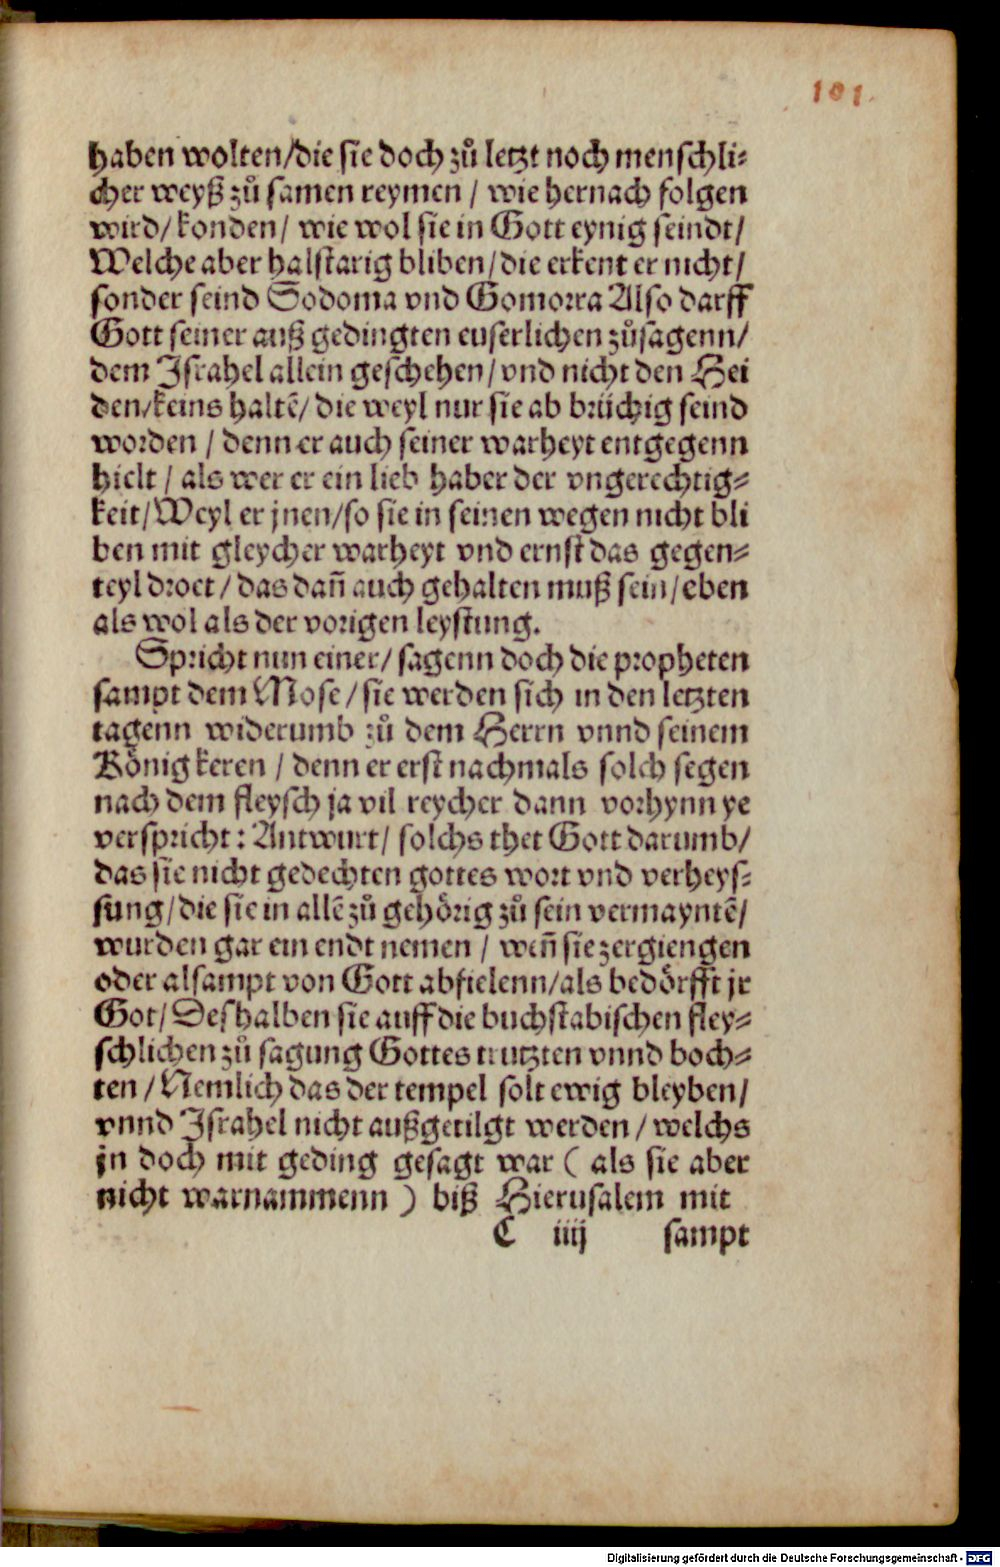 101.
haben wolten/die sie doch zů letzt noch menschli⸗
cher weyß zů samen reymen / wie hernach folgen
wird/ konden/ wie wol sie in Gott eynig seindt/
Welche aber halstarig bliben/die erkent er nicht/
sonder seind Sodoma vnd Gomorra Also darff
Gott seiner auß gedingten euserlichen zůsagenn/
dem Israhel allein geschehen/vnd nicht den Hei
den/keins haltē/ die weyl nur sie ab brüchig seind
worden / denn er auch seiner warheyt entgegenn
hielt / als wer er ein lieb haber der vngerechtig⸗
keit/Weyl er jnen/so sie in seinen wegen nicht bli
ben mit gleycher warheyt vnd ernst das gegen⸗
teyl droet/das dañ auch gehalten muß sein/eben
als wol als der vorigen leystung.
Spricht nun einer/ sagenn doch die propheten
sampt dem Mose/sie werden sich in den letzten
tagenn widerumb zů dem Herrn vnnd seinem
König keren / denn er erst nachmals solch segen
nach dem fleysch ja vil reycher dann vorhynn ye
verspricht: Antwurt/ solchs thet Gott darumb/
das sie nicht gedechten gottes wort vnd verheys⸗
sung/die sie in allē zů gehörig zů sein vermayntē/
wurden gar ein endt nemen / weñ sie zergiengen
oder alsampt von Gott abfielenn/als bedörfft jr
Got/Deshalben sie auff die buchstabischen fley⸗
schlichen zů sagung Gottes trutzten vnnd boch⸗
ten/Nemlich das der tempel solt ewig bleyben/
vnnd Israhel nicht außgetilgt werden/welchs
jn doch mit geding gesagt war ( als sie aber
nicht warnammenn ) biß Hierusalem mit
C iiij sampt
Digitalisierung gefördert durch die Deutsche Forschungsgemeinschaft - DFG